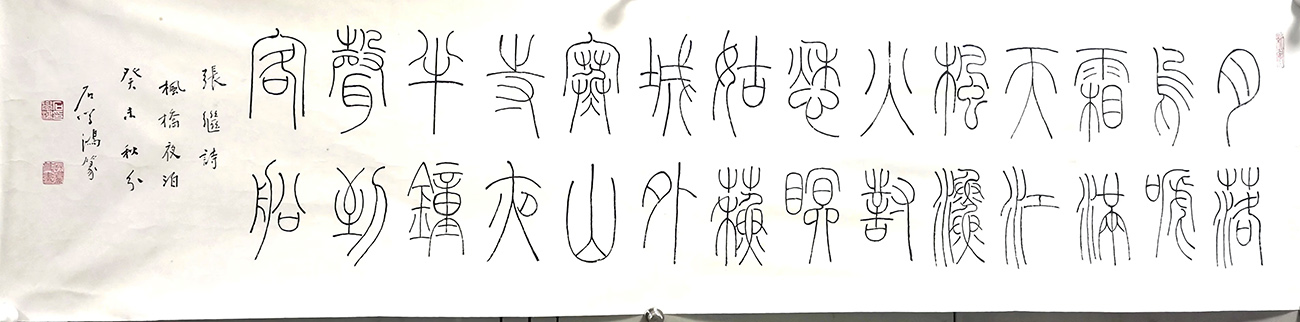 月落
烏啼
霜滿
天江
楓漁
火對
愁眠
姑蘇
城外
寒山
寺夜
半鐘
聲到
客船
張繼詩
楓橋夜泊
癸未秋分
石鴻篆